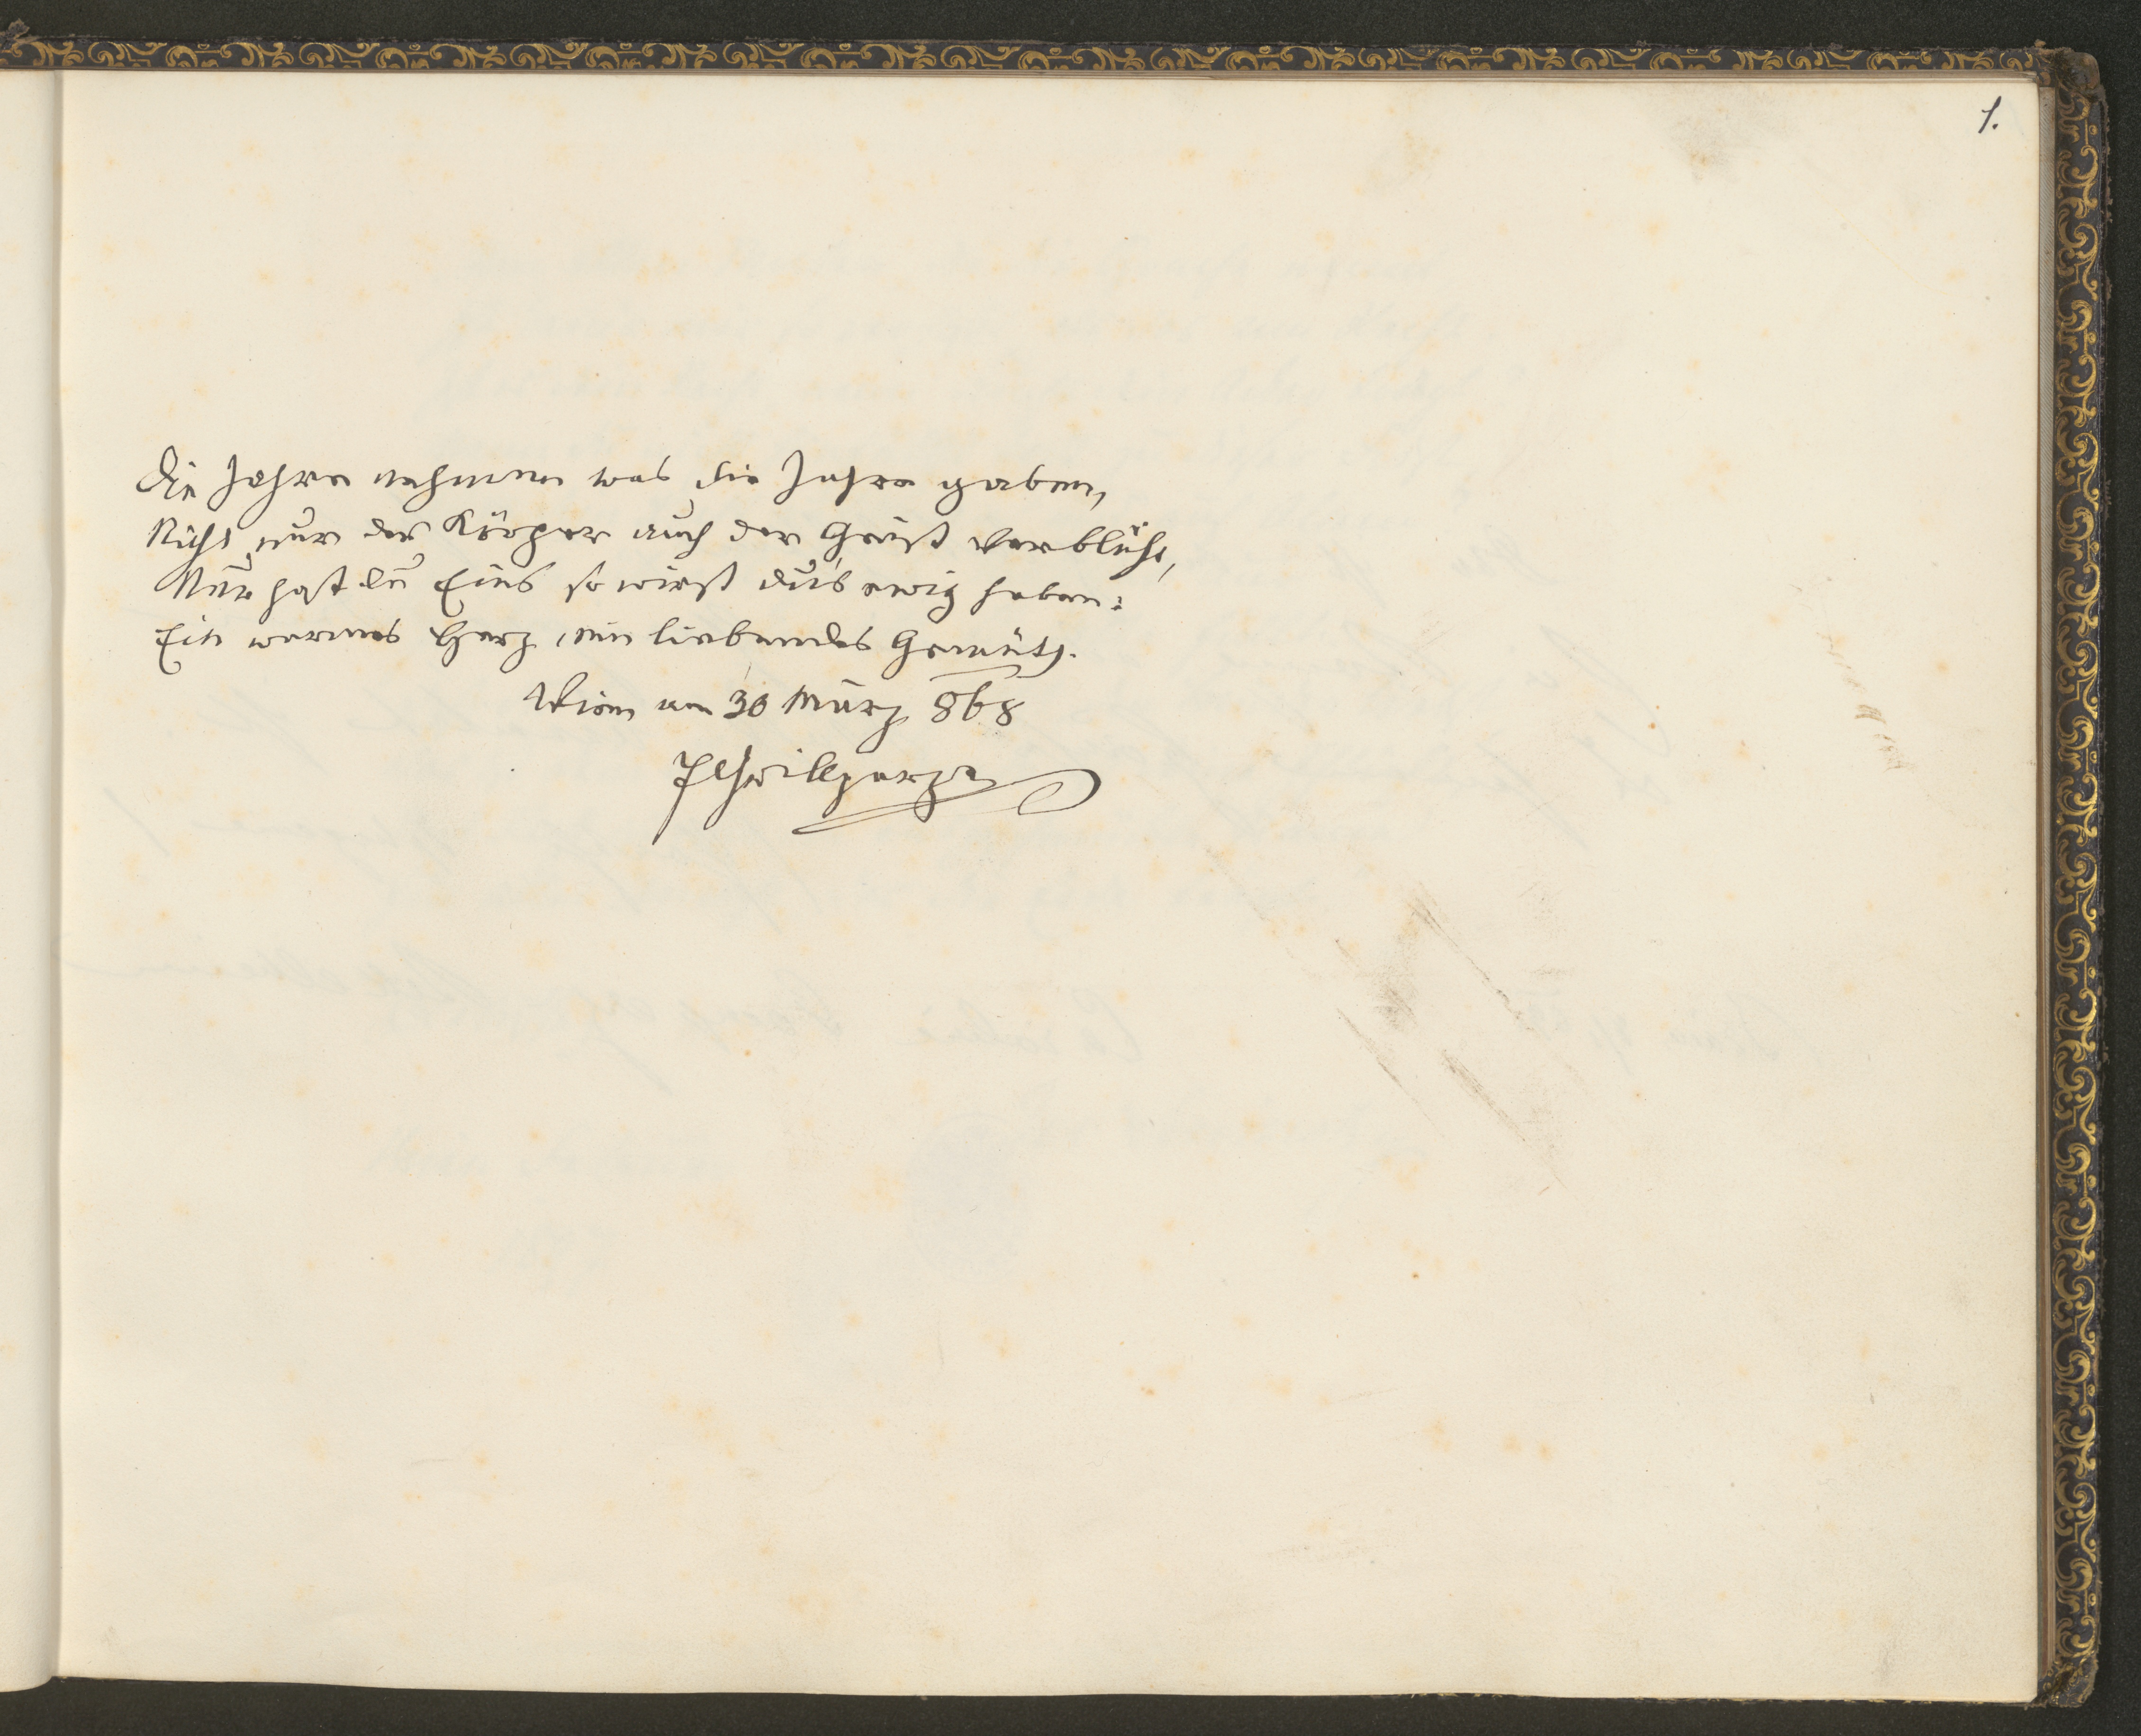 1.
Die Jahre nehmen was die Jahre gaben,
Nicht nur der Körper auch der Geist verblüht,
Nur hast du Eins so wirst du's ewig haben:
Ein warmes Herz, ein liebendes Gemüth.
Wien am 30 März 868
FGrillparzer